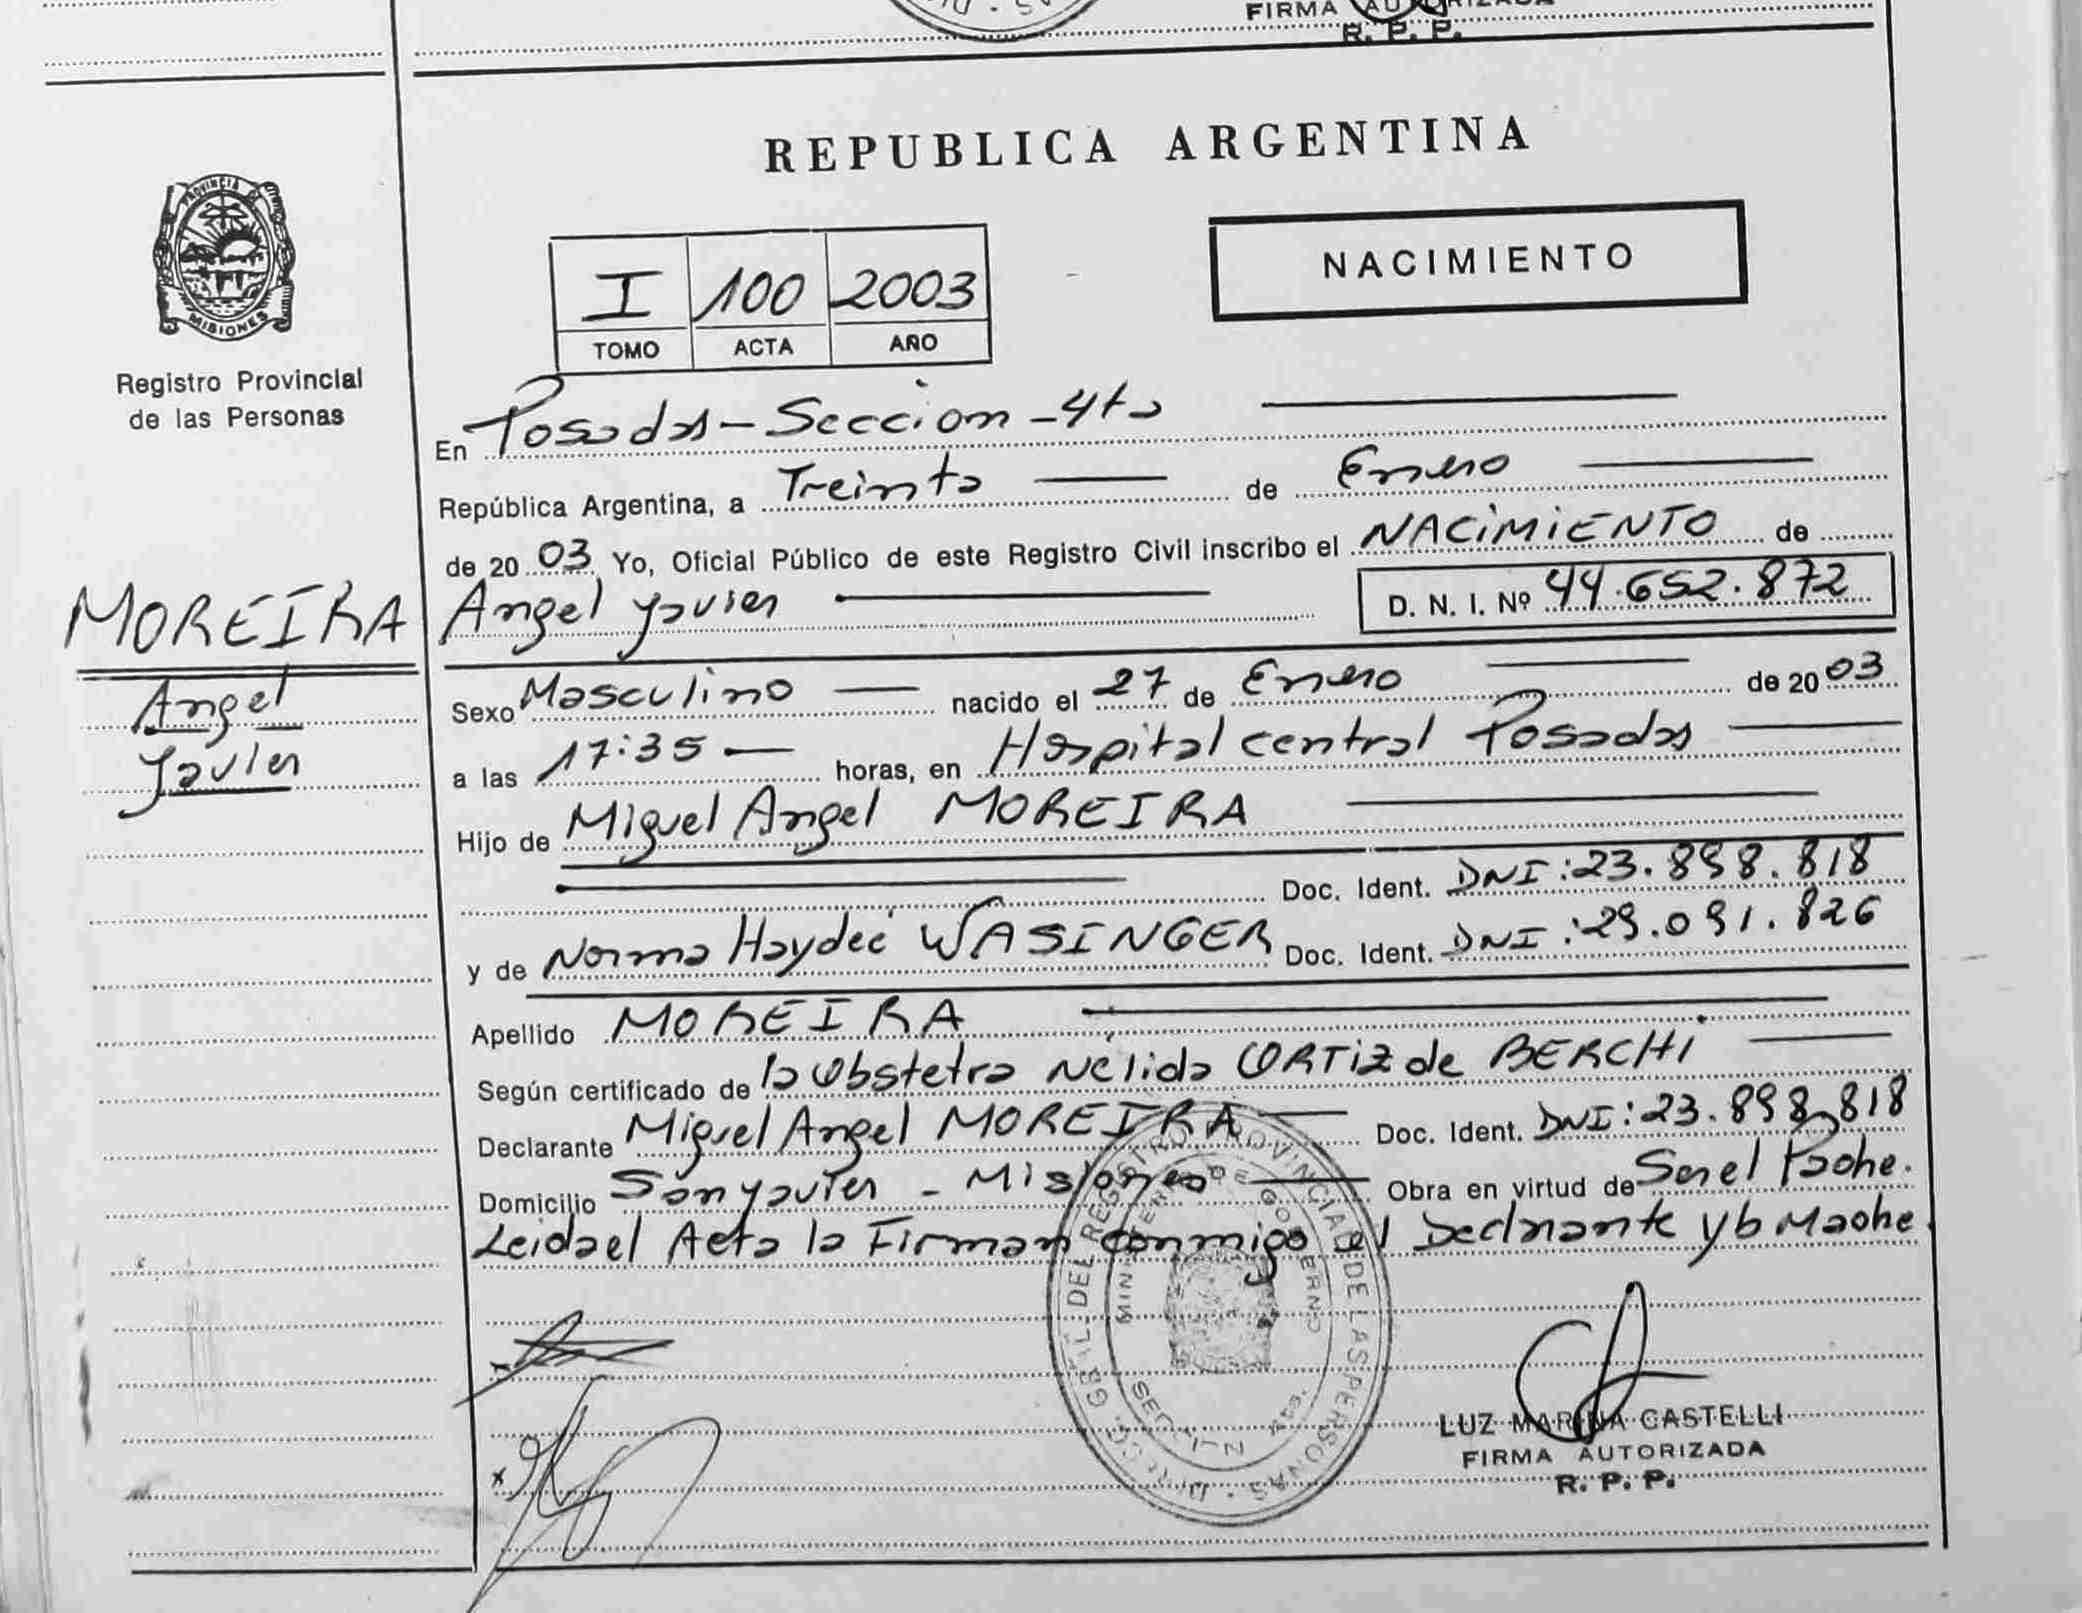 FIRMA AUTORIZADA
R. P. P.
REPUBLICA ARGENTINA
PROVINCIA DE
MISIONES
Registro Provincial
de las Personas
I 100 2003
TOMO ACTA AÑO
NACIMIENTO
En Posadas - Seccion - 4ta
República Argentina, a Treinta de Enero
de 20 03 Yo, Oficial Público de este Registro Civil inscribo el NACIMIENTO de
MOREIRA
Angel
Javier
Angel Javier D. N. I. Nº 44.652.872
Sexo Masculino nacido el 27 de Enero de 20 03
a las 17:35 horas, en Hospital central Posadas
Hijo de Miguel Angel MOREIRA
Doc. Ident. DNI: 23.898.818
y de Norma Haydeé WASINGER Doc. Ident. DNI: 29.091.826
Apellido MOREIRA
Según certificado de la Obstetra Nélida ORTIZ de BERCHI
Declarante Miguel Angel MOREIRA Doc. Ident. DNI: 23.898.818
Domicilio San Javier - Misiones Obra en virtud de Ser el Padre.
Leida el Acta la Firman conmigo el Declarante y la Madre.
DIRECC. GRAL. DEL REGISTRO PROVINCIAL DE LAS PERSONAS
MINISTERIO DE GOBIERNO
LUZ MARINA CASTELLI
FIRMA AUTORIZADA
R. P. P.